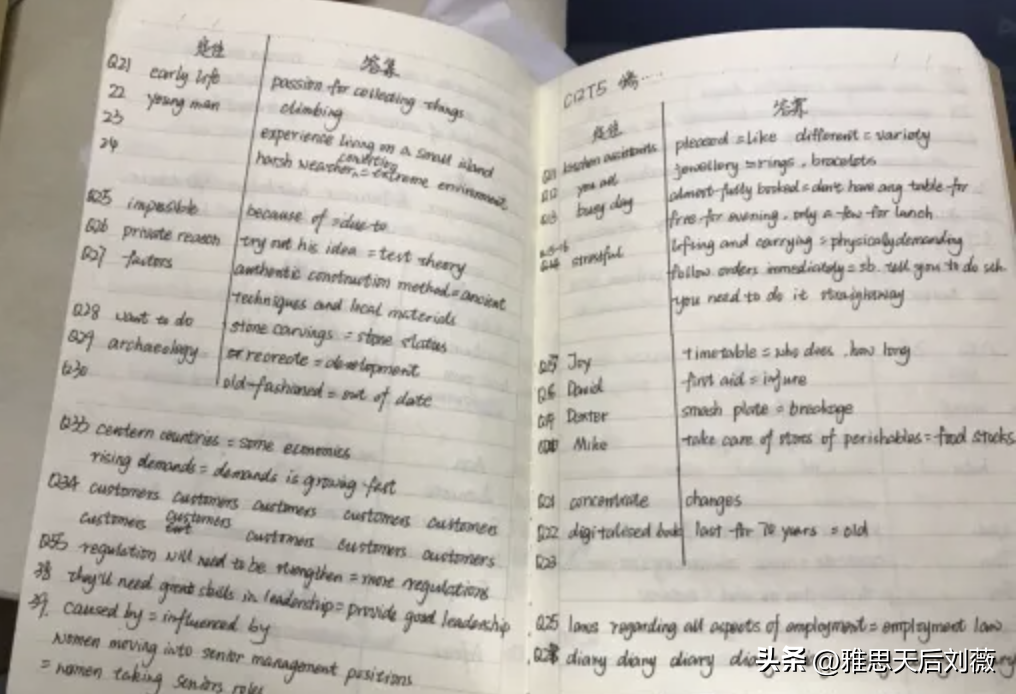 定位 答案
Q21 early life passion for collecting things
22 young man climbing
23 experience living on a small island
24 harsh weather condition = extreme environment
Q25 impossible because of = due to
Q26 private reason try out his idea = test theory
Q27 factors authentic construction method = ancient
techniques and local materials
Q28 want to do stone carvings = stone status
Q29 archaeology or recreate = development
Q30 old-fashioned = out of date
Q33 centern countries = some economics
rising demands = demands is growing fast
Q34 customers customers customers customers customers
customers customers customers customers customers
Q35 regulation will need to be strengthen = more regulations
38 they'll need great skills in leadership = provide good leadership
39. caused by = influenced by
women moving into senior management positions
= women taking seniors roles
C12T5
定位 答案
Q11 kitchen assistants pleased = like different = variety
Q12 you out jewellery = rings, bracelets
Q13 busy day almost fully booked = don't have any table for
free for evening, only a few for lunch
Q14 stressful lifting and carrying = physically demanding
Q15-16 follow orders immediately = sb. tell you to do sth
you need to do it straightaway
Q17 Joy timetable = who does, how long
Q18 David first aid = injure
Q19 Dexter smash plate = breakage
Q20 Mike take care of stores of perishables = food stocks
Q21 concentrate changes
Q22 digitalised last for 70 years = old
Q23
Q25 laws regarding all aspects of employment = employment law
diary diary diary
头条 @雅思天后刘薇